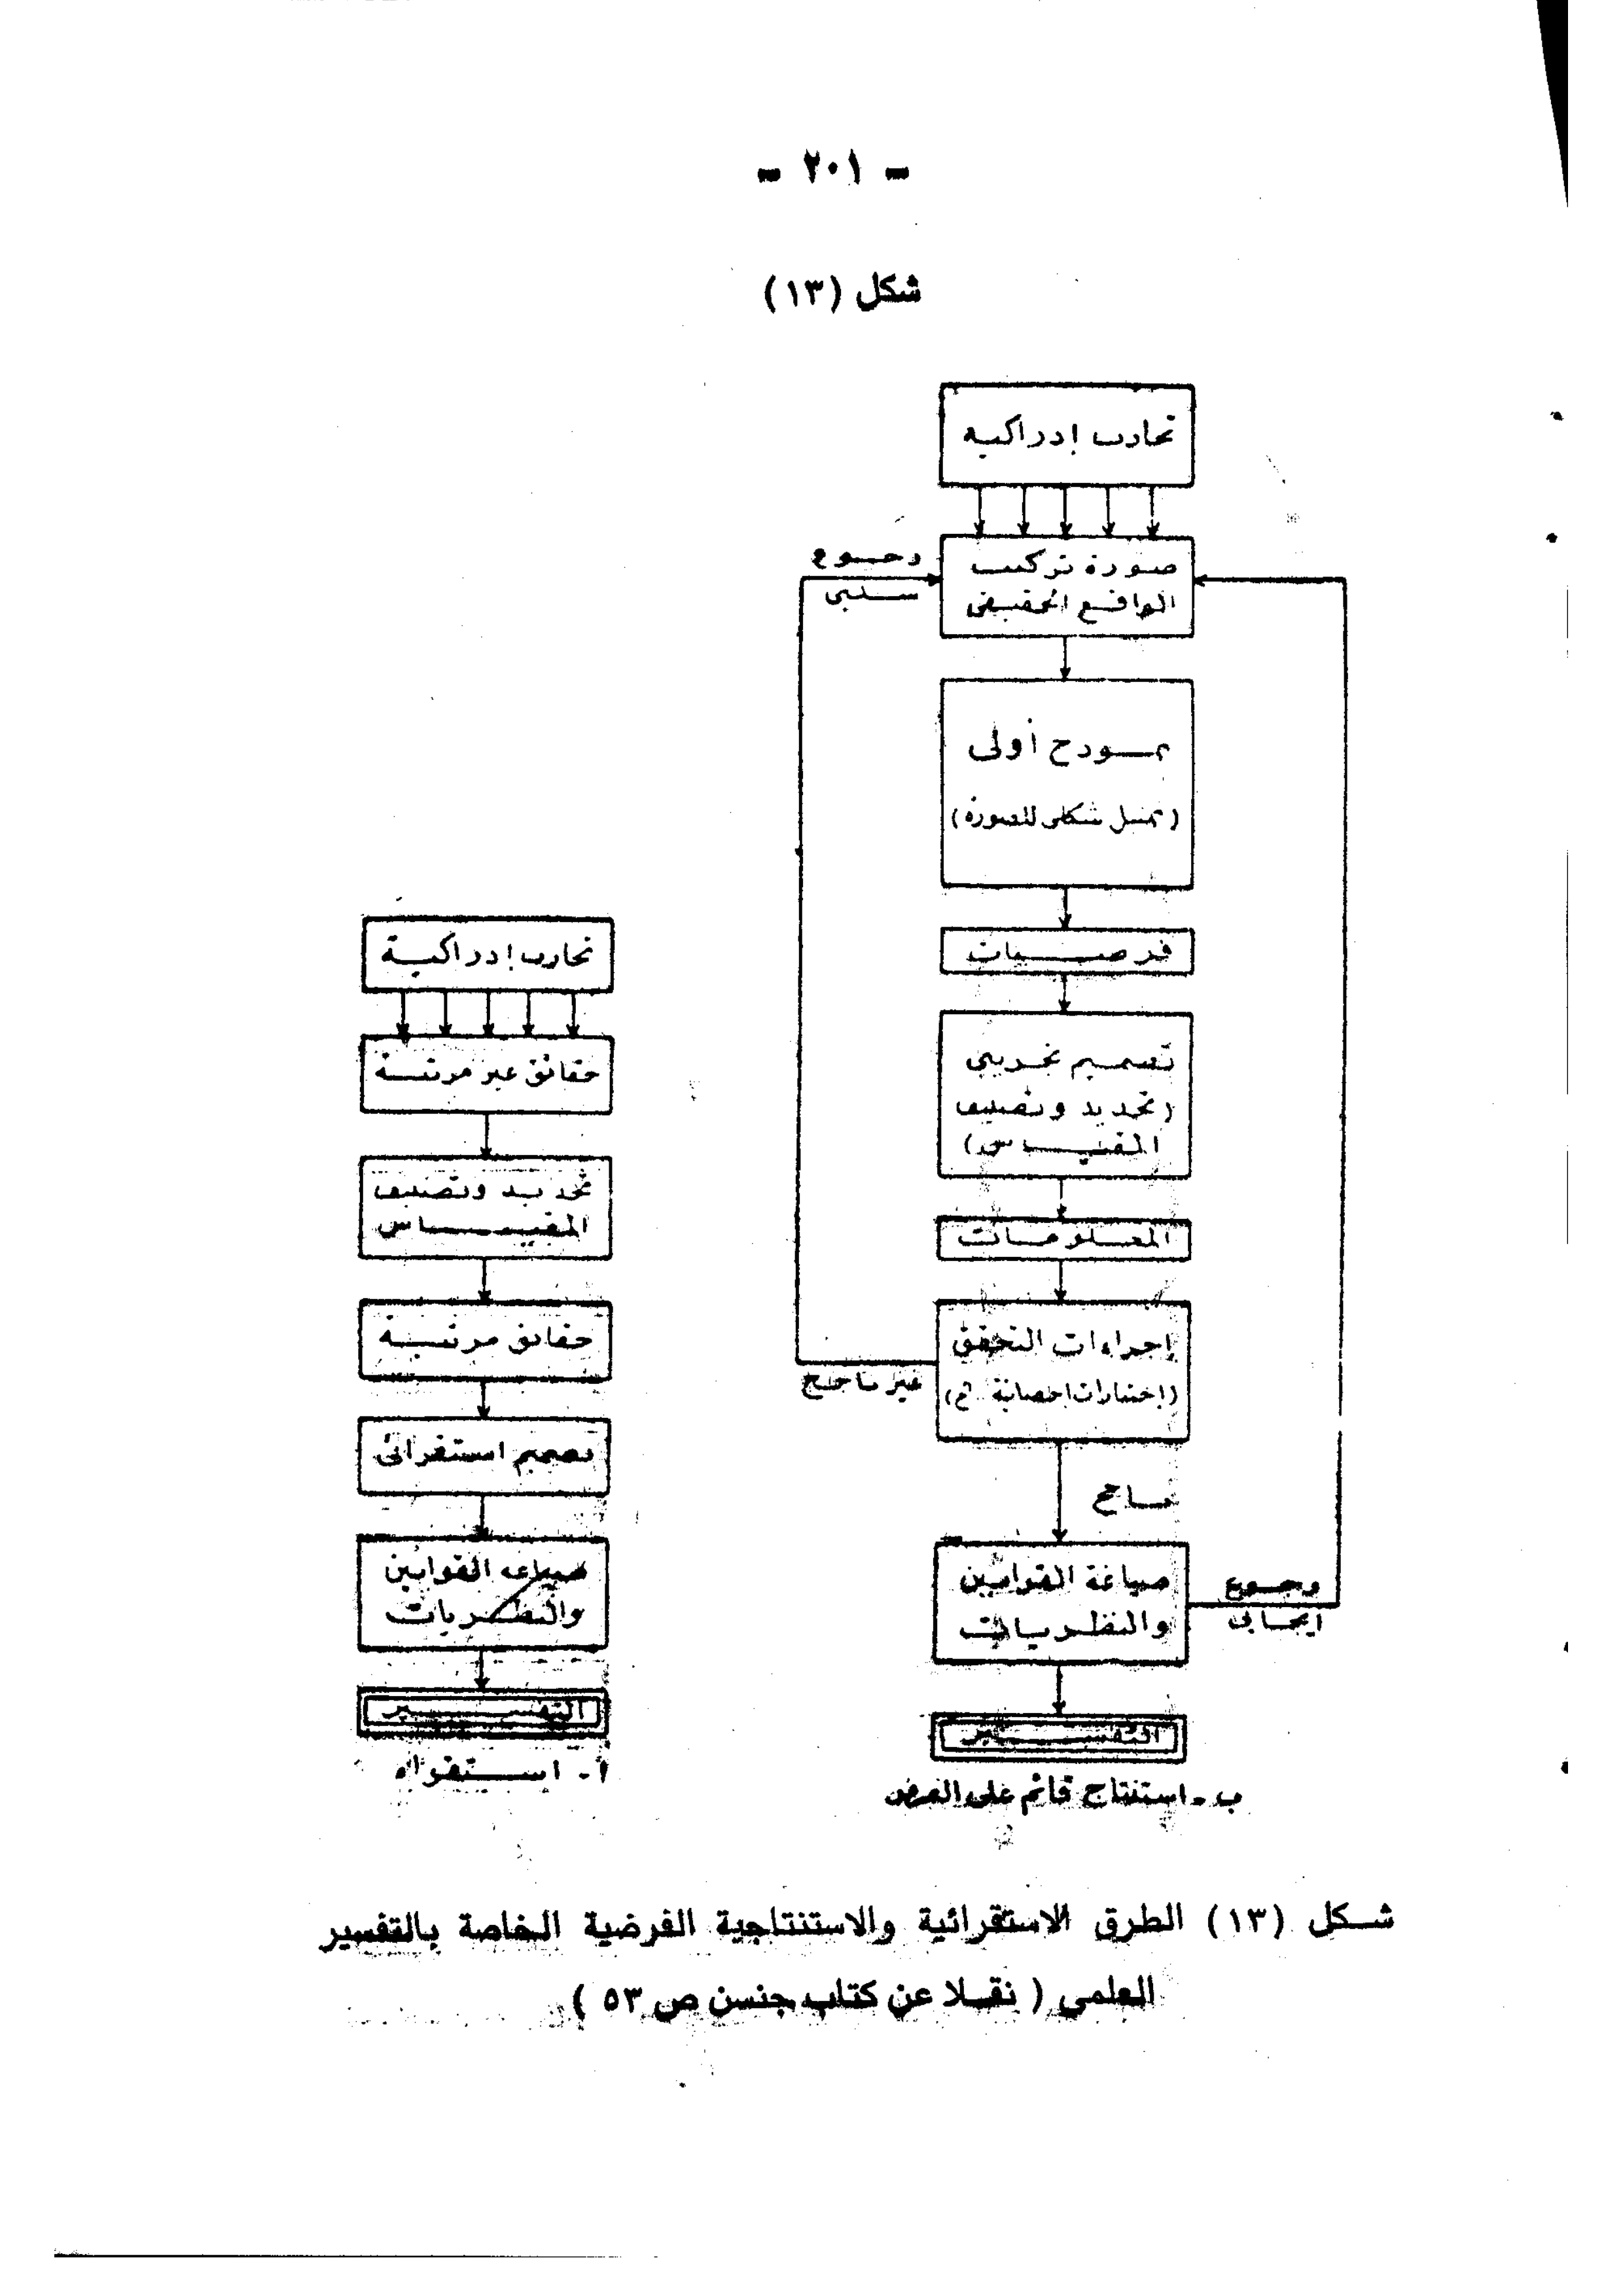 - ٢٠١ -
شكل (١٣)
تجارب إدراكية
صورة تركيب
الواقع الحقيقى
رجوع
سلبى
نموذج أولى
(تمثيل شكلى للصورة)
فرضيات
تصميم تجريبى
(تحديد وتصنيف
المقياس)
المعلومات
إجراءات التحقق
(اختبارات احصائية
غير ناجح
ناجح
صياغة القوانين
والنظريات
رجوع
ايجابى
التفسير
ب - استنتاج قائم على الفرض
تجارب إدراكية
حقائق غير مرتبة
تحديد وتصنيف
المقياس
حقائق مرتبة
تعميم استقرائى
صياغة القوانين
والنظريات
التفسير
أ - استقراء
شكل (١٣) الطرق الاستقرائية والاستنتاجية الفرضية الخاصة بالتفسير
العلمى ( نقلا عن كتاب جنسن ص ٥٣ )